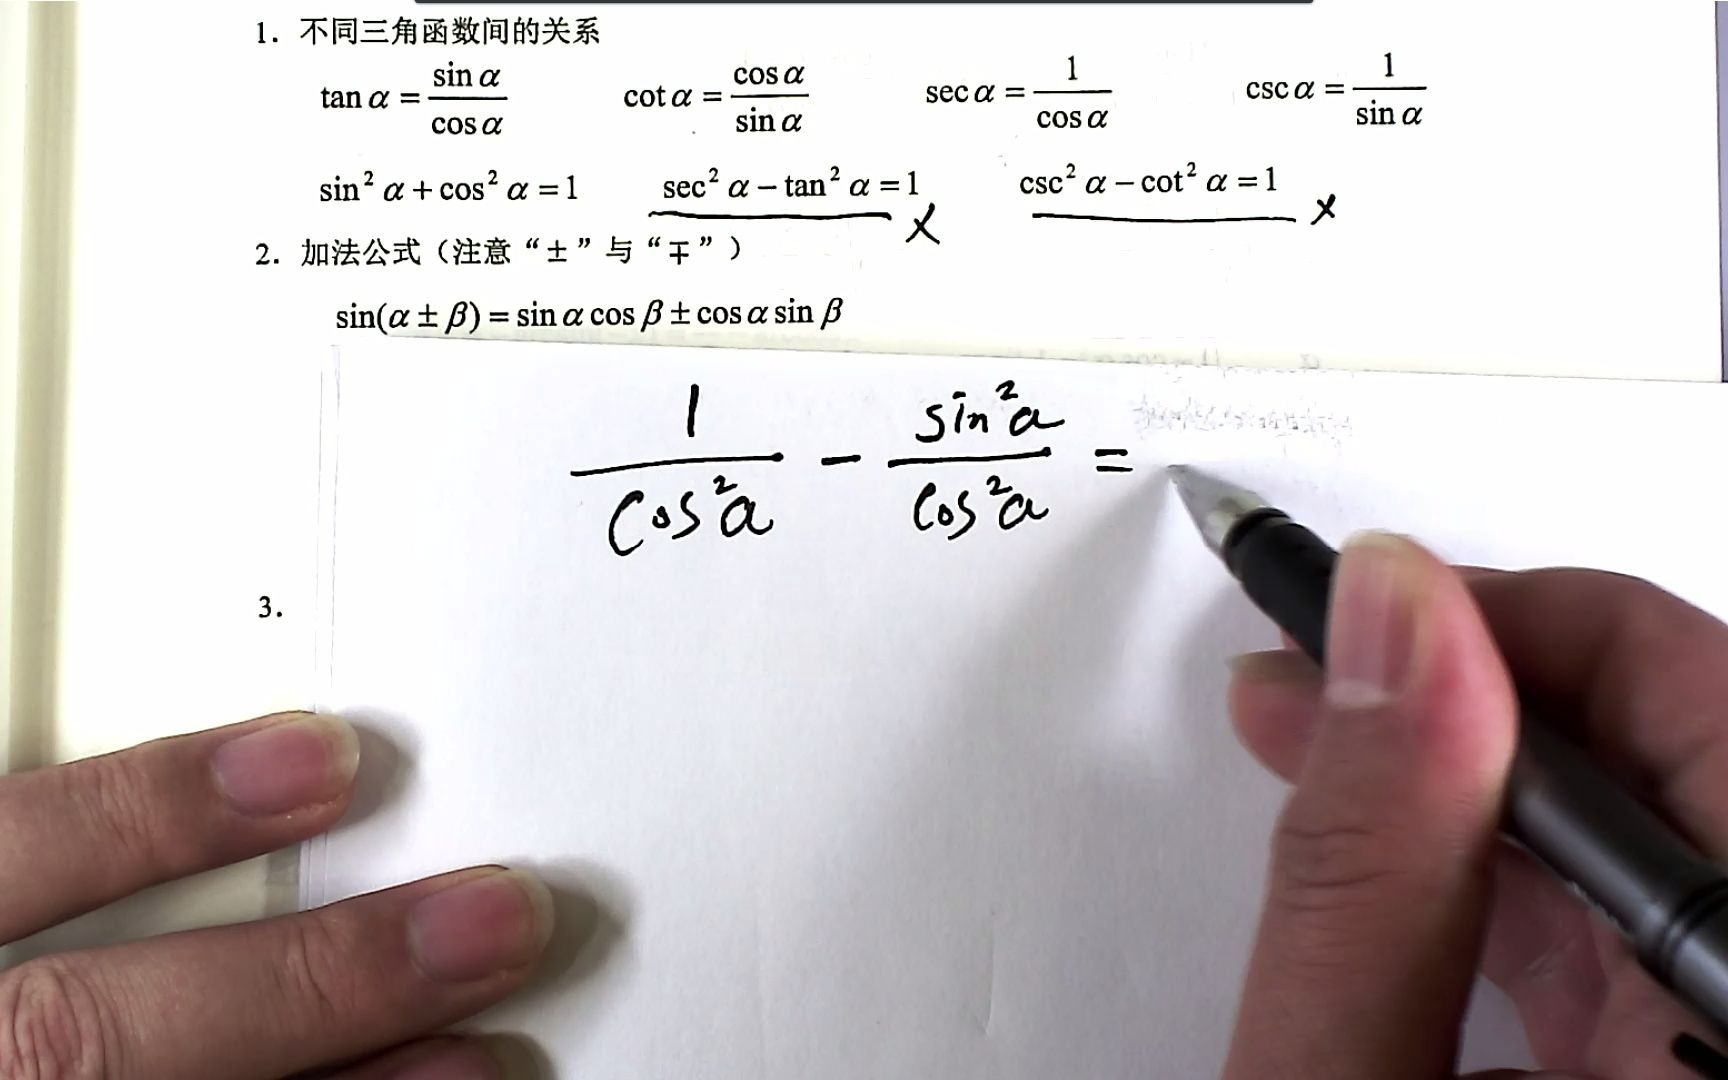 1. 不同三角函数间的关系
tan α = sin α / cos α    cot α = cos α / sin α    sec α = 1 / cos α    csc α = 1 / sin α
sin² α + cos² α = 1    sec² α − tan² α = 1 ×    csc² α − cot² α = 1 ×
2. 加法公式（注意“±”与“∓”）
sin(α ± β) = sin α cos β ± cos α sin β
1 / cos²α − sin²α / cos²α =
3.